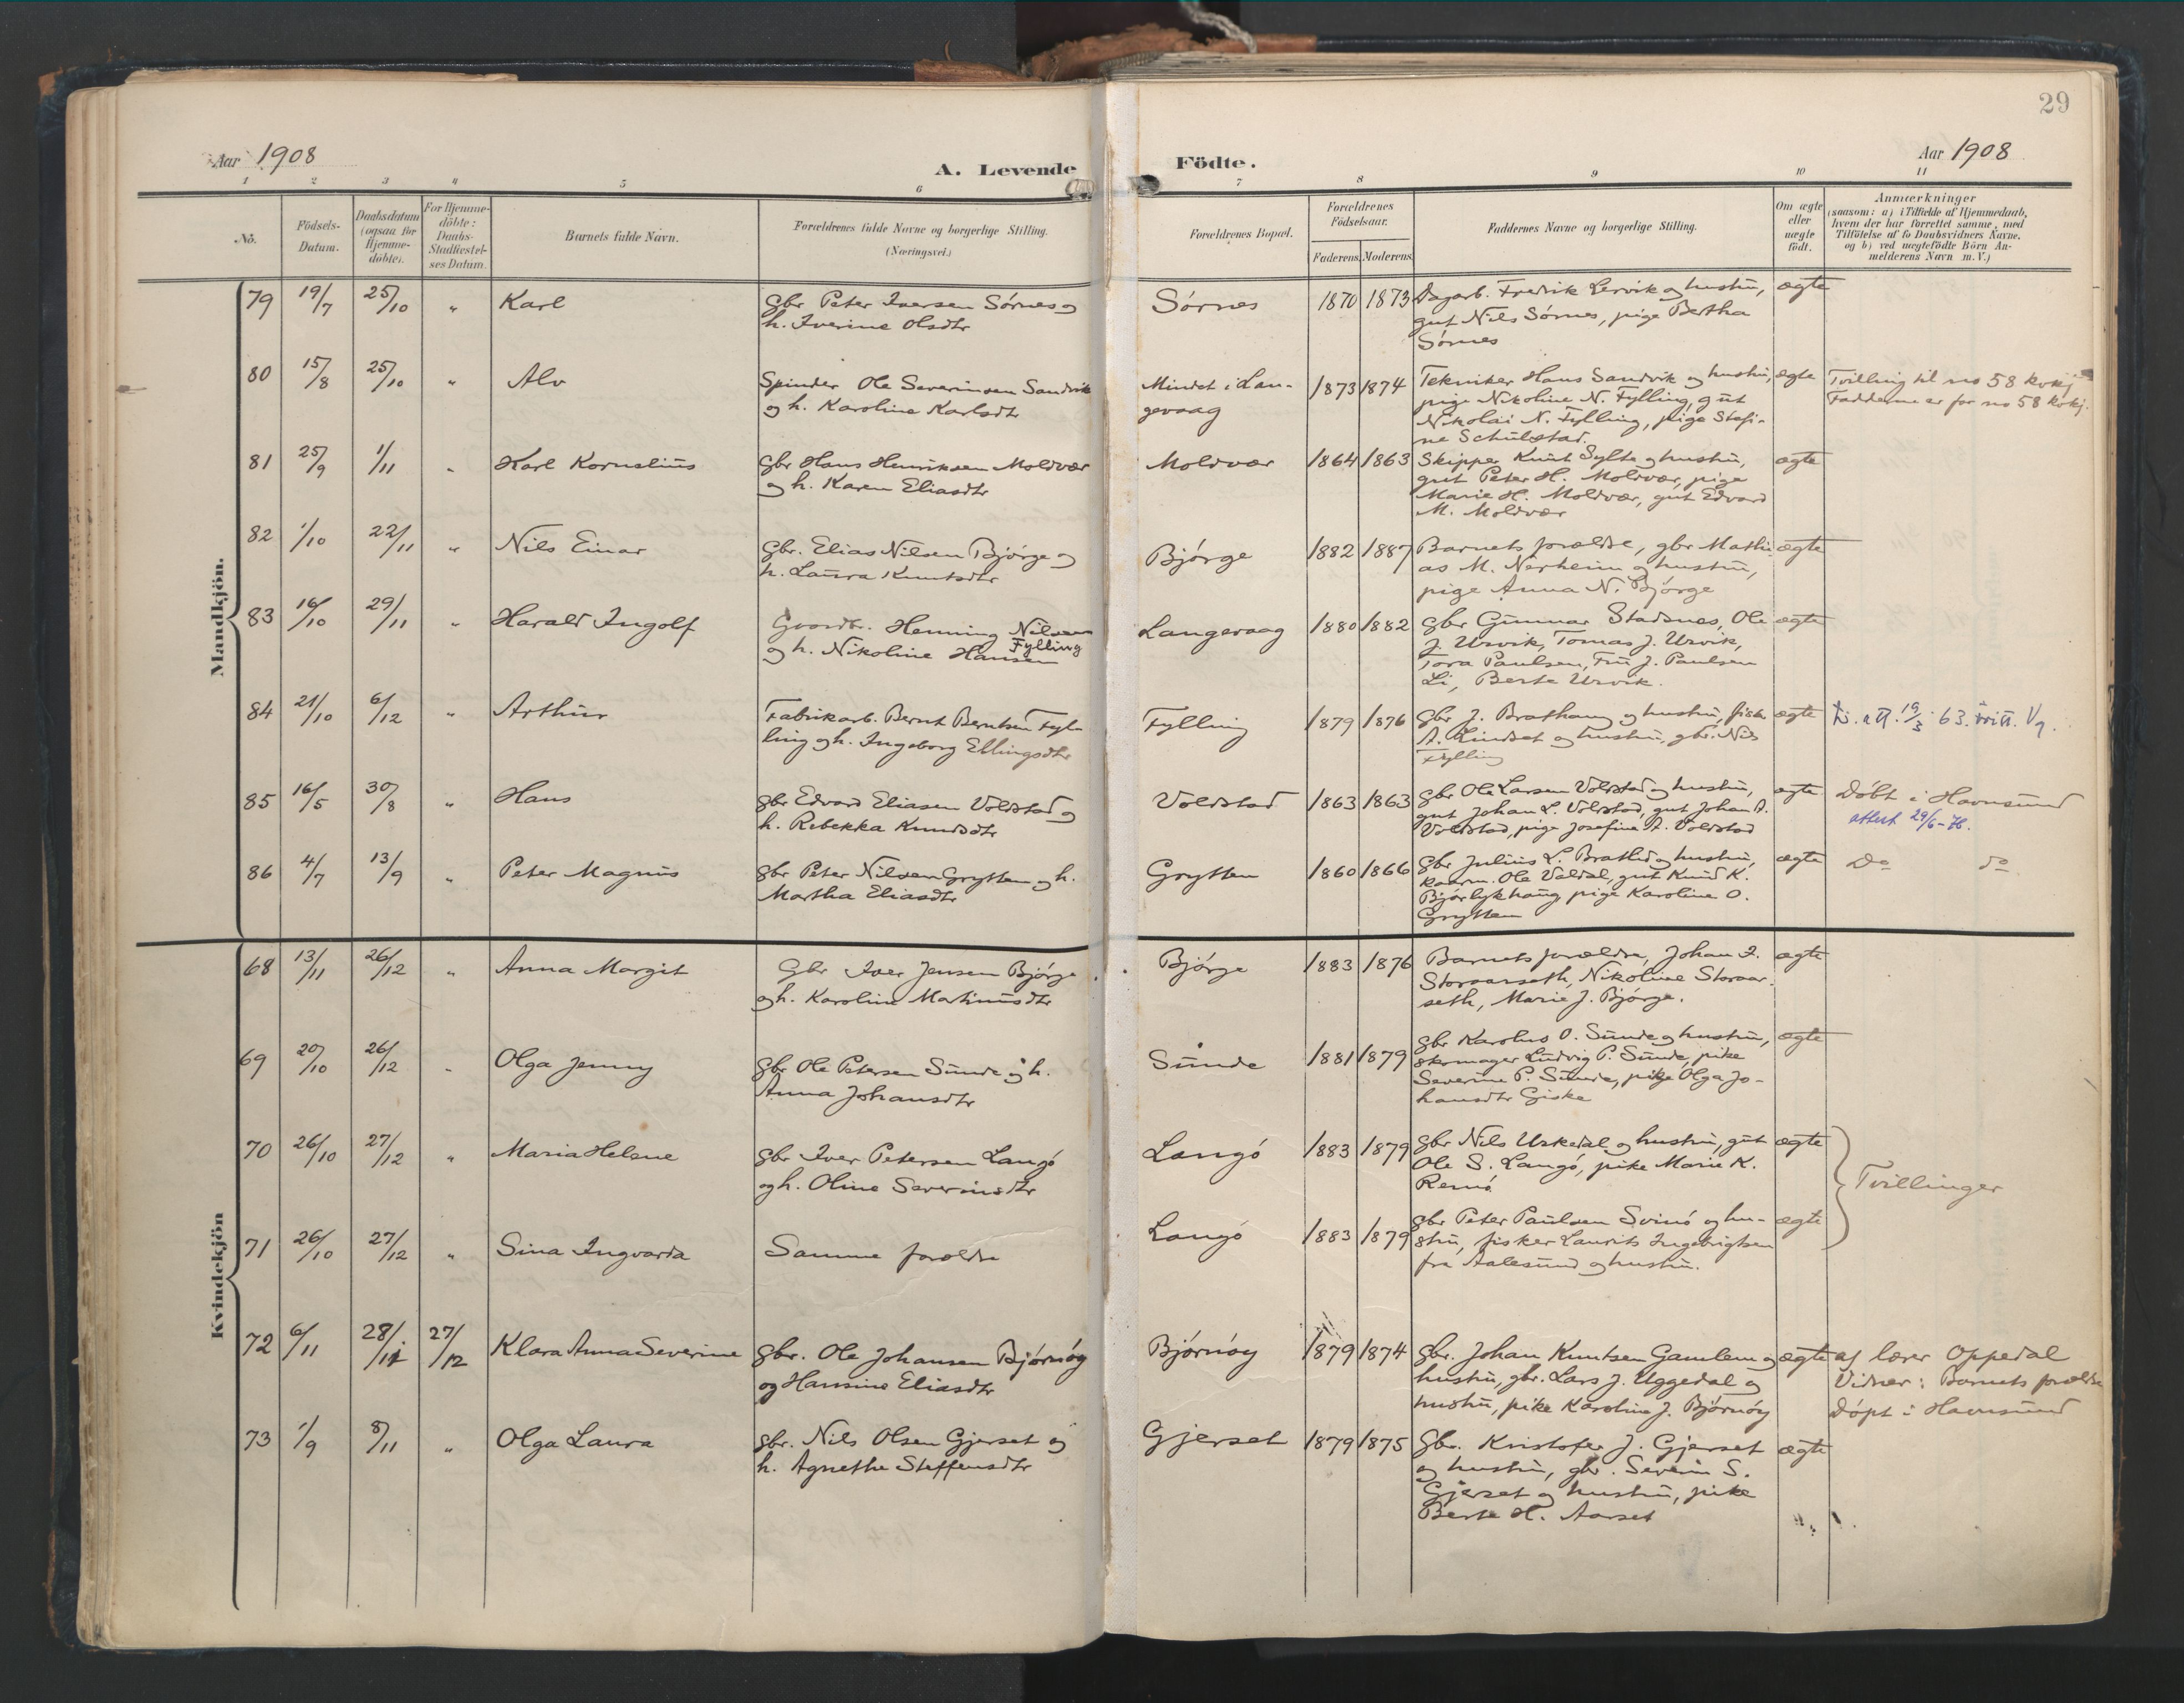 29
Aar 1908
A. Levende
Födte.
Aar 1908
1 2 3 4 5 6 7 8 9 10 11
No.
Födsels-
Datum.
Daabsdatum
(ogsaa for
Hjemme-
döbte).
For Hjemme-
döbte:
Daabs-
Stadfæstel-
ses Datum.
Barnets fulde Navn.
Forældrenes fulde Navne og borgerlige Stilling.
(Næringsvei.)
Forældrenes Bopæl.
Forældrenes
Födselsaar.
Faderens. Moderens.
Faddernes Navne og borgerlige Stilling.
Om ægte
eller
uægte
födt.
Anmærkninger
(saasom: a) i Tilfælde af Hjemmedaab,
hvem der har forrettet samme, med
Tilföielse af to Daabsvidners Navne,
og b) ved uægtefödte Börn An-
melderens Navn m. V.)
Mandkjön.
79 19/7 25/10 " Karl
Gbr Peter Iversen Sørnes og
h. Iverine Olsdtr
Sørnes 1870 1873
Dagarb. Fredrik Lervik og hustru,
gut Nils Sørnes, pige Bertha
Sørnes
ægte
80 15/8 25/10 " Alv
Spinder Ole Severinsen Sandvik
og h. Karoline Karlsdtr
Mindet i Lan-
gevaag
1873 1874
Tekniker Hans Sandvik og hustru,
pige Nikoline N. Fylling, gut
Nikolai N. Fylling, pige Stefi-
ne Schulstad.
ægte
Tvilling til no 58 kvkj
Fadderne er for no 58 kvkj.
81 25/9 1/11 " Karl Kornelius
Gbr Hans Henriksen Moldvær
og h. Karen Eliasdtr
Moldvær 1864 1863
Skipper Knut Sylte og hustru,
gut Peter H. Moldvær, pige
Marie H. Moldvær, gut Edvard
M. Moldvær
ægte
82 1/10 22/11 " Nils Einar
Gbr. Elias Nilsen Bjørge og
h. Laura Knutsdtr
Bjørge 1882 1887
Barnets forældre, gbr Mathi-
as M. Nerheim og hustru,
pige Anna N. Bjørge
ægte
83 16/10 29/11 " Harald Ingolf
Gvardbr. Henning Nilsen
Fylling
og h. Nikoline Hansen
Langevaag 1880 1882
Gbr Gunnar Stadsnes, Ole
J. Urvik, Tomas J. Urvik,
Tora Paulsen, Fru J. Paulsen
Li, Berte Urvik.
ægte
84 21/10 6/12 " Arthur
Fabrikarb. Bernt Berntsen Fyl-
ling og h. Ingeborg Ellingsdtr
Fylling 1879 1876
Gbr J. Brathaug og hustru, fisker
A. Lindset og hustru, gbr. Nils
Fylling
ægte
att. 19/3 63.
85 16/5 30/8 " Hans
Gbr Edvard Eliasen Voldstad og
h. Rebekka Knudsdtr
Voldstad 1863 1863
Gbr Ole Larsen Voldstad og hustru,
gut Johan L. Voldstad, gut Johan A.
Voldstad, pige Josefine A. Voldstad
ægte
Døbt i Havnsund
attest 29/6-76.
86 4/7 13/9 " Peter Magnus
Gbr Peter Nilsen Grytten og h.
Martha Eliasdtr
Grytten 1860 1866
Gbr Julius L. Bratlid og hustru,
kaarm. Ole Valdal, gut Knud K.
Bjørlykhaug pige Karoline O.
Grytten
ægte
Do do
Kvindekjön
68 13/11 26/12 " Anna Margit
Gbr Iver Jensen Bjørge
og h. Karoline Martinusdtr
Bjørge 1883 1876
Barnets forældre, Johan I.
Storaarseth, Nikoline Storaar-
seth, Marie J. Bjørge.
ægte
69 20/10 26/12 " Olga Jenny
Gbr Ole Petersen Sunde og h.
Anna Johansdtr
Sunde 1881 1879
Gbr Karolus O. Sunde og hustru,
skomager Ludvig P. Sunde, pike
Severine P. Sunde, pike Olga Jo-
hansdtr Giske
ægte
70 26/10 27/12 " Maria Helene
Gbr Iver Petersen Langø
og h. Oline Severinsdtr
Langø 1883 1879
Gbr Nils Urkedal og hustru, gut
Ole S. Langø, pike Marie K.
Remø
ægte
Tvillinger
71 26/10 27/12 " Sina Ingvarda
Samme forældre
Langø 1883 1879
Gbr Peter Paulsen Svinø og hu-
stru, fisker Laurits Ingebrigtsen
fra Aalesund og hustru.
ægte
72 6/11 28/11 27/12 Klara Anna Severine
Gbr. Ole Johansen Bjørnøy
og Hansine Eliasdtr
Bjørnøy 1879 1874
Gbr. Johan Knutsen Gamlem og
hustru, gbr. Lars J. Uggedal og
hustru, pike Karoline J. Bjørnøy
ægte
af lærer Oppedal
Vidner: Barnets forældre
73 1/9 8/11 " Olga Laura
gbr. Nils Olsen Gjerset og
h. Agnethe Steffensdtr
Gjerset 1879 1875
Gbr. Kristofer J. Gjerset
og hustru, gbr. Severin S.
Gjerset og hustru, pike
Berte H. Aarset
ægte
Døpt i Havnsund